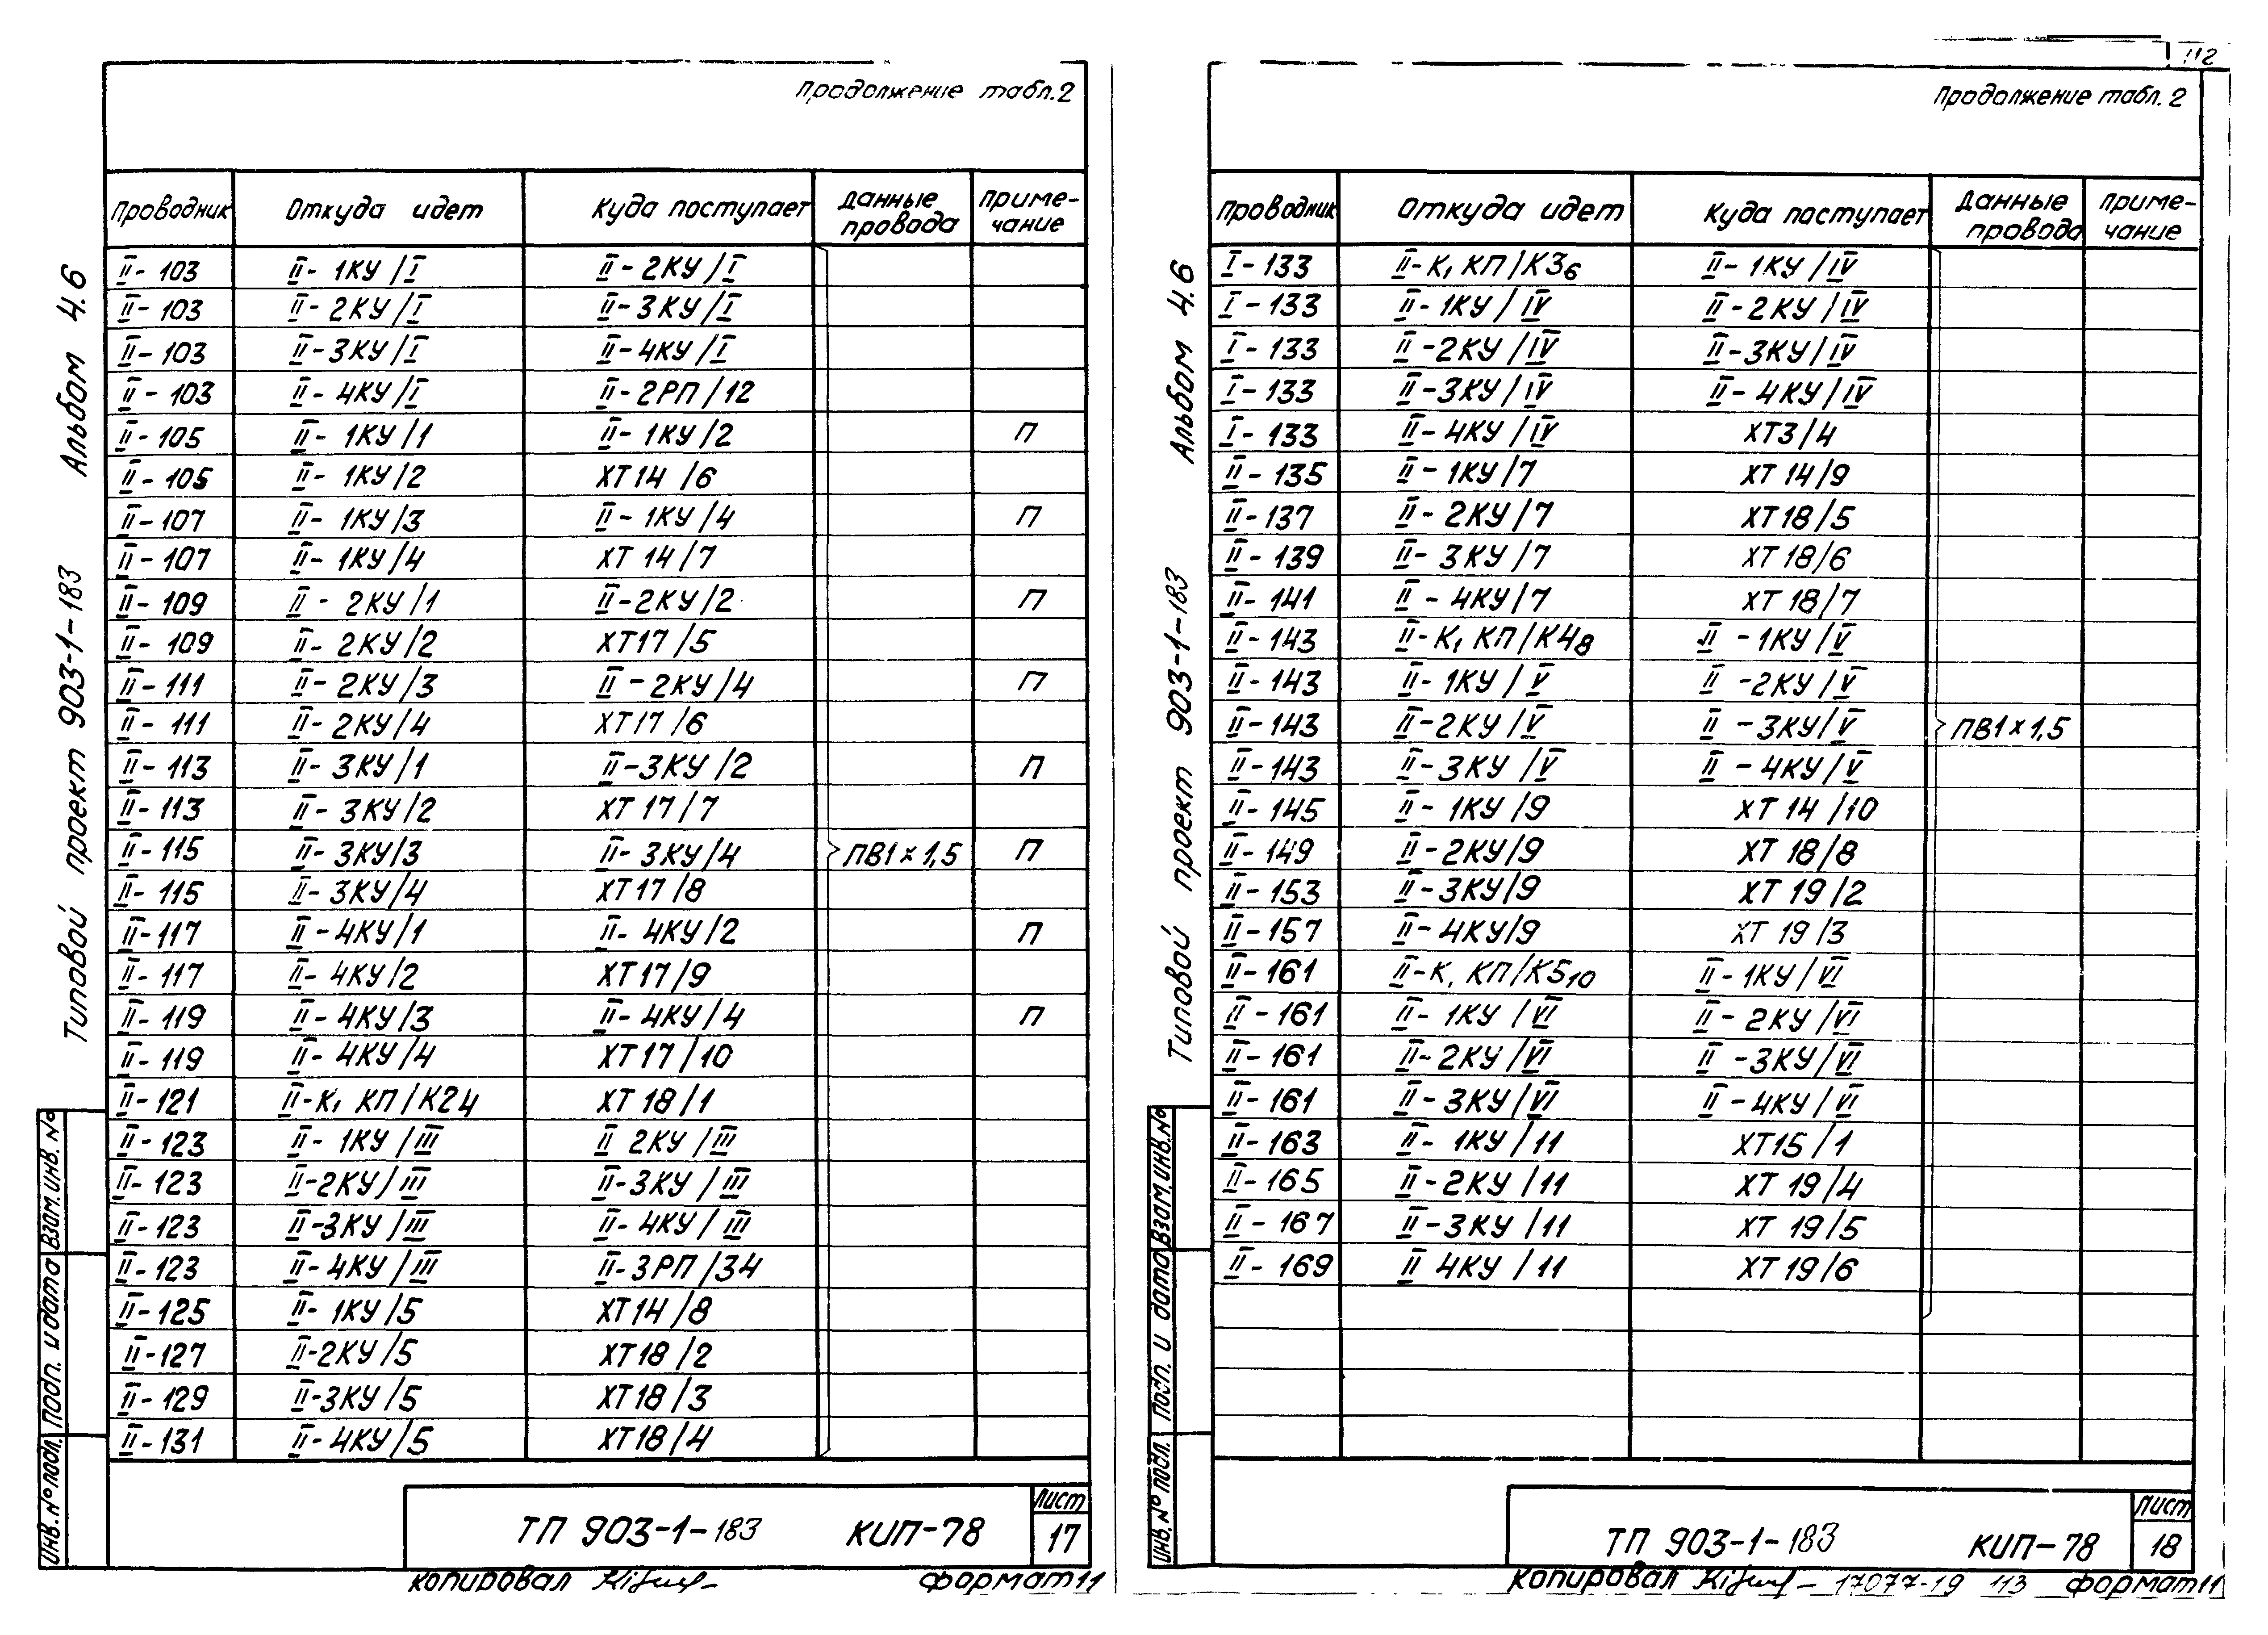 Продолжение табл.2
Проводник | Откуда идет | Куда поступает | Данные провода | Примечание
II-103 | II-1КУ/I | II-2КУ/I
II-103 | II-2КУ/I | II-3КУ/I
II-103 | II-3КУ/I | II-4КУ/I
II-103 | II-4КУ/I | II-2РП/12
II-105 | II-1КУ/1 | II-1КУ/2 | П
II-105 | II-1КУ/2 | ХТ14/6
II-107 | II-1КУ/3 | II-1КУ/4 | П
II-107 | II-1КУ/4 | ХТ14/7
II-109 | II-2КУ/1 | II-2КУ/2 | П
II-109 | II-2КУ/2 | ХТ17/5
II-111 | II-2КУ/3 | II-2КУ/4 | П
II-111 | II-2КУ/4 | ХТ17/6
II-113 | II-3КУ/1 | II-3КУ/2 | П
II-113 | II-3КУ/2 | ХТ17/7
II-115 | II-3КУ/3 | II-3КУ/4 | ПВ1×1,5 | П
II-115 | II-3КУ/4 | ХТ17/8
II-117 | II-4КУ/1 | II-4КУ/2 | П
II-117 | II-4КУ/2 | ХТ17/9
II-119 | II-4КУ/3 | II-4КУ/4 | П
II-119 | II-4КУ/4 | ХТ17/10
II-121 | II-К1 КП/К24 | ХТ18/1
II-123 | II-1КУ/III | II 2КУ/III
II-123 | II-2КУ/III | II-3КУ/III
II-123 | II-3КУ/III | II-4КУ/III
II-123 | II-4КУ/III | II-3РП/34
II-125 | II-1КУ/5 | ХТ14/8
II-127 | II-2КУ/5 | ХТ18/2
II-129 | II-3КУ/5 | ХТ18/3
II-131 | II-4КУ/5 | ХТ18/4
ТП 903-1-183 КИП-78
Лист
17
Копировал
Формат 11
Типовой проект 903-1-183 Альбом 4.6
Инв. № подл. Подп. и дата Взам. инв. №
112
Продолжение табл.2
Проводник | Откуда идет | Куда поступает | Данные провода | Примечание
I-133 | II-К1 КП/К36 | II-1КУ/IV
I-133 | II-1КУ/IV | II-2КУ/IV
I-133 | II-2КУ/IV | II-3КУ/IV
I-133 | II-3КУ/IV | II-4КУ/IV
I-133 | II-4КУ/IV | ХТ3/4
II-135 | II-1КУ/7 | ХТ14/9
II-137 | II-2КУ/7 | ХТ18/5
II-139 | II-3КУ/7 | ХТ18/6
II-141 | II-4КУ/7 | ХТ18/7
II-143 | II-К1 КП/К48 | II-1КУ/V
II-143 | II-1КУ/V | II-2КУ/V
II-143 | II-2КУ/V | II-3КУ/V | ПВ1×1,5
II-143 | II-3КУ/V | II-4КУ/V
II-145 | II-1КУ/9 | ХТ14/10
II-149 | II-2КУ/9 | ХТ18/8
II-153 | II-3КУ/9 | ХТ19/2
II-157 | II-4КУ/9 | ХТ19/3
II-161 | II-К1 КП/К510 | II-1КУ/VI
II-161 | II-1КУ/VI | II-2КУ/VI
II-161 | II-2КУ/VI | II-3КУ/VI
II-161 | II-3КУ/VI | II-4КУ/VI
II-163 | II-1КУ/11 | ХТ15/1
II-165 | II-2КУ/11 | ХТ19/4
II-167 | II-3КУ/11 | ХТ19/5
II-169 | II 4КУ/11 | ХТ19/6
ТП 903-1-183 КИП-78
Лист
18
Копировал
17077-19 113 Формат 11
Типовой проект 903-1-183 Альбом 4.6
Инв. № подл. Подп. и дата Взам. инв. №